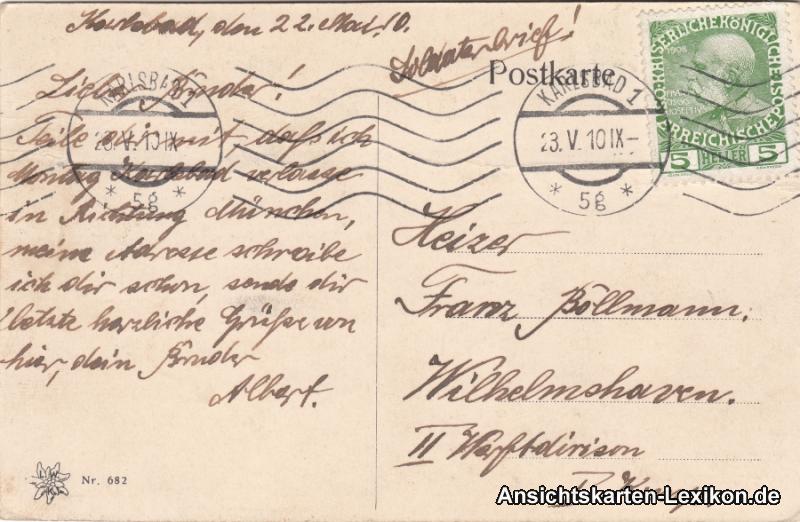 Karlsbad, den 22. Mai 10.
Soldatenbrief!
Postkarte
KAISERLICHE KÖNIGLICHE
ÖSTERREICHISCHE POST
1908
5 HELLER 5
KARLSBAD 1
23. V. 10 IX-
* 5g *
KARLSBAD 1
23. V. 10 IX
* 5g *
Lieber Bruder!
Teile dir mit daß ich
Montag Karlsbad verlasse
in Richtung München,
meine Adresse schreibe
ich dir schon, sende dir
letzte herzliche Grüße von
hier, dein Bruder
Albert.
Heizer
Franz Böllmann,
Wilhelmshaven.
II Werftdivison
Nr. 682
Ansichtskarten-Lexikon.de